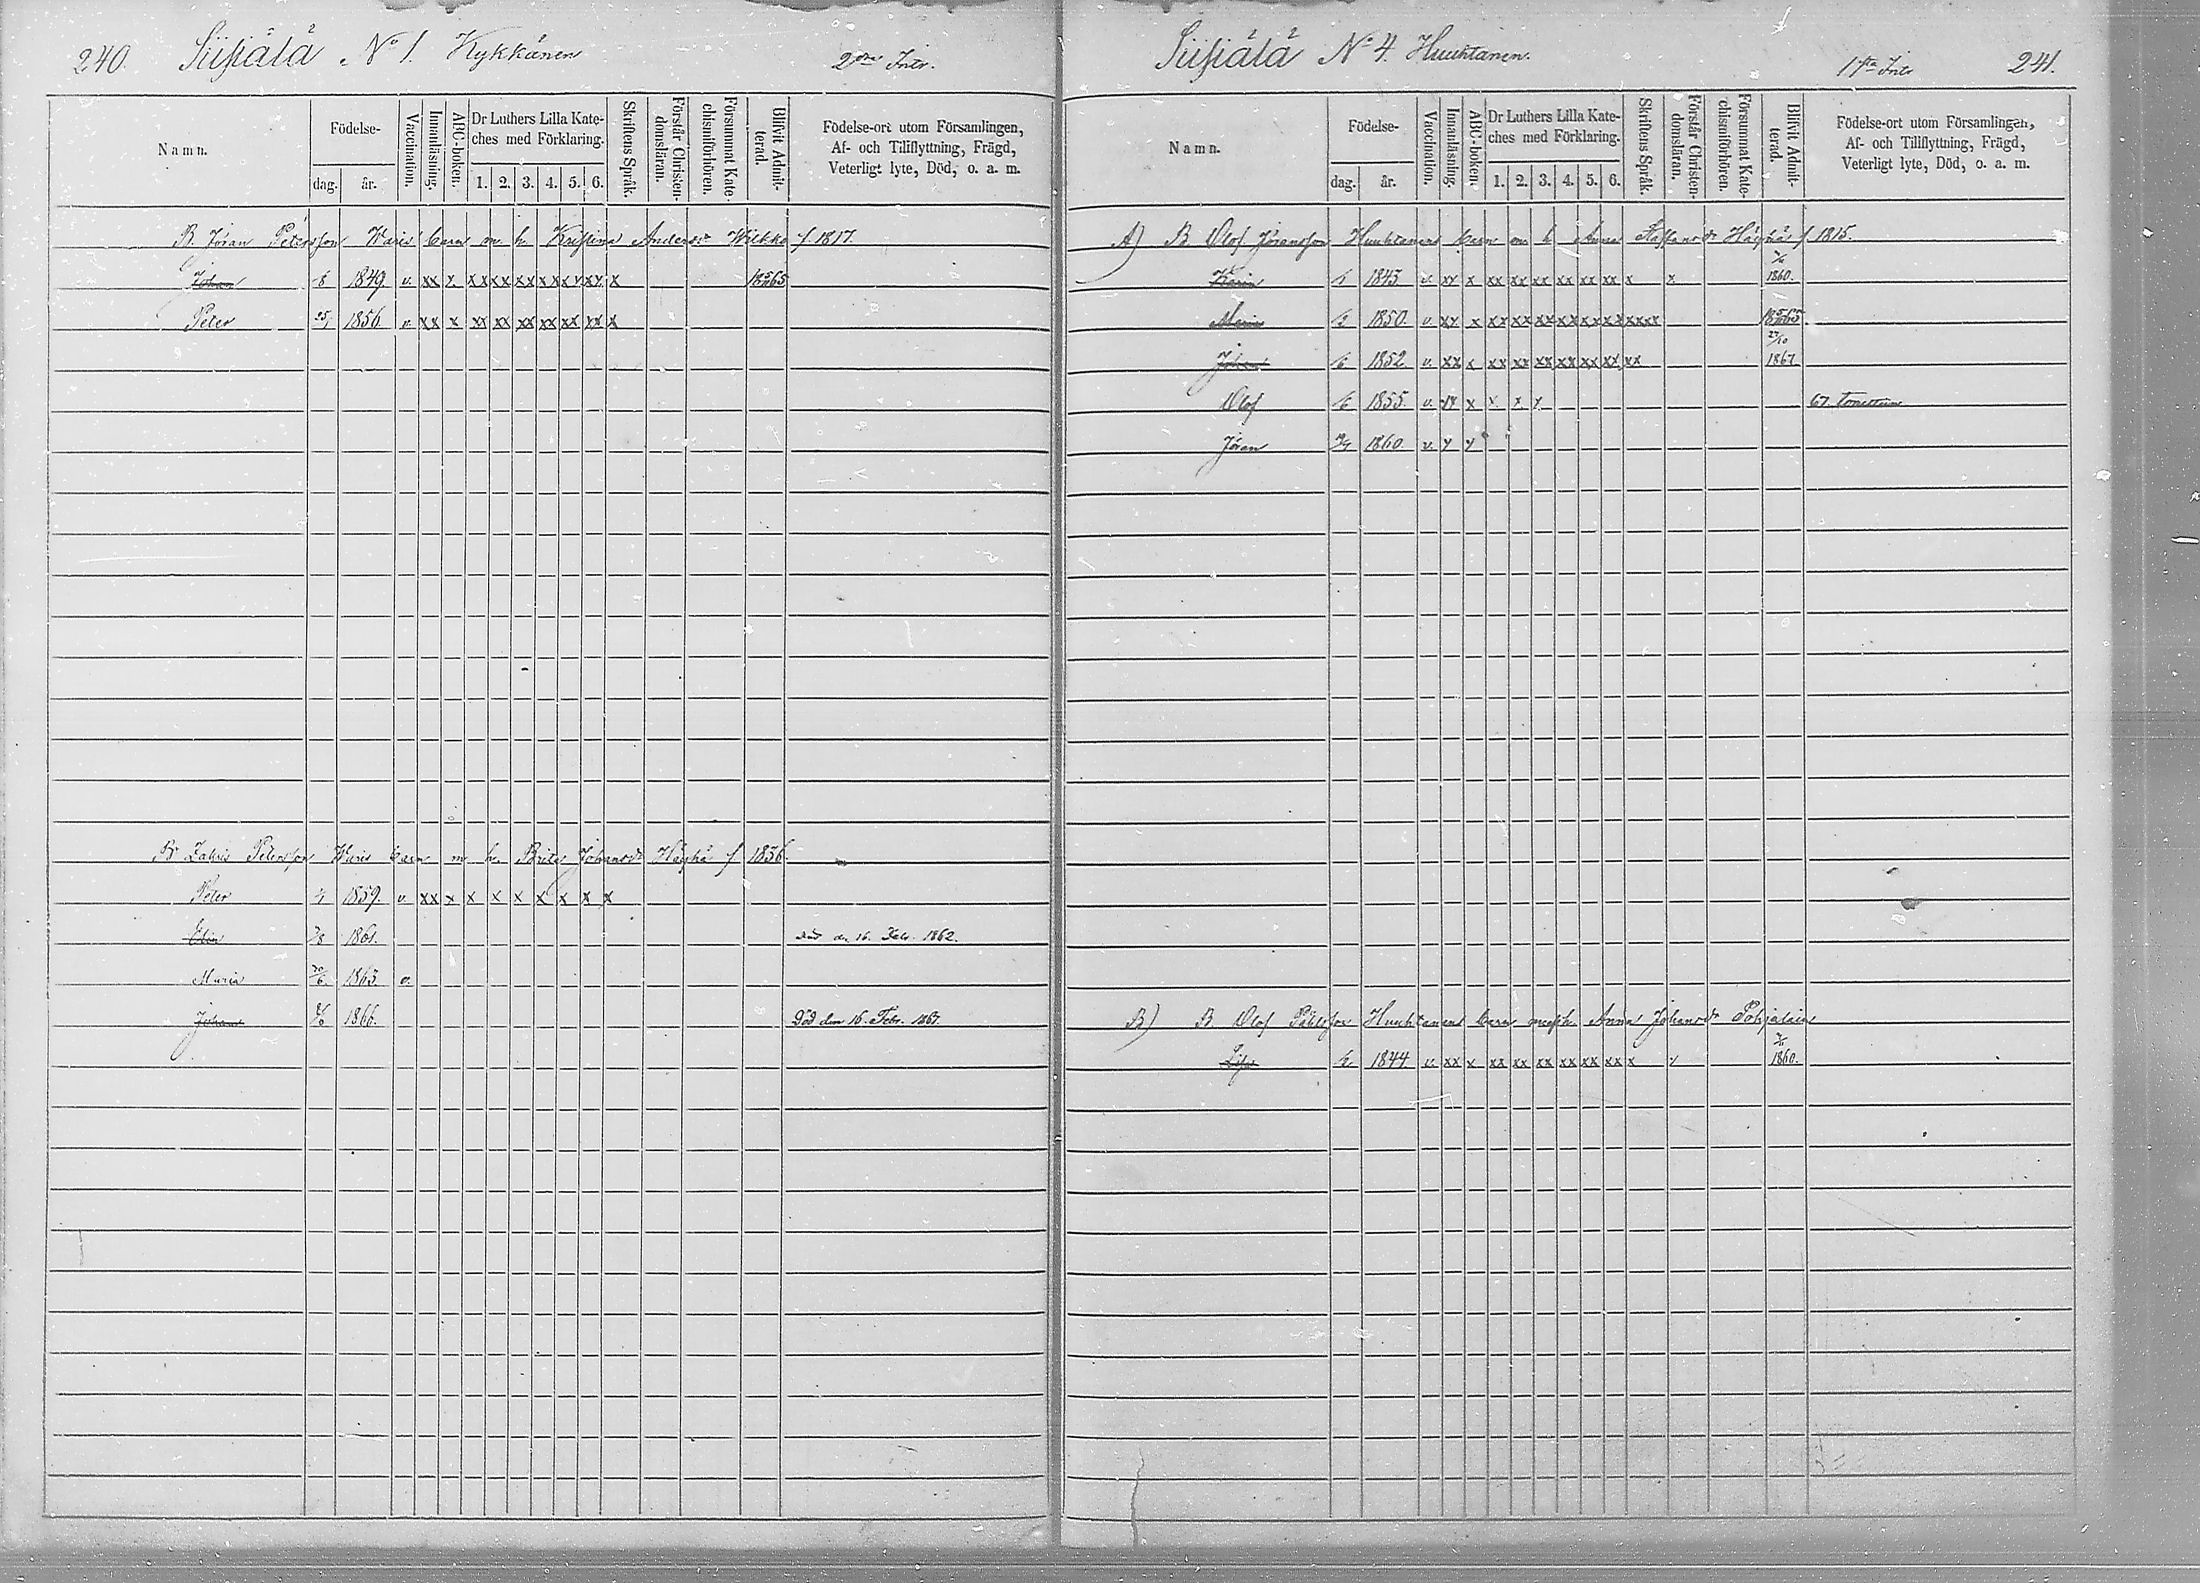 240. Siisiälä No 1. Kykkänen 2dra Intr.
Namn. Födelse- dag. år. Vaccination. Innanläsning. ABC-boken. Dr Luthers Lilla Kateches med Förklaring. 1. 2. 3. 4. 5. 6. Skriftens Språk. Förstår Christendomsläran. Försummat Katechismiförhören. Blifvit Admitterad. Födelse-ort utom Församlingen, Af- och Tillflyttning, Frägd, Veterligt lyte, Död, o. a. m.
B. Jöran Petersson Waris barn m. h. Kristina Andersdr Wilkko f 1817.
Johan 1849 v. xx x xx xx xx xx xx xx x
Peter 1856 v. xx x xx xx xx xx xx xx x
Br Zakris Petersson Waris barn m h. Brita Johansdr Häyhä f 1836.
Peter 1859. v. xx x x x x x x x x
Elin 1861. Död den 16. Febr. 1862.
Maria 20/6 1863 v.
Johan 1866. Död den 16. Febr. 1867.
Siisiälä No 4. Huuhtanen. 1sta Intr 241.
Namn. Födelse- dag. år. Vaccination. Innanläsning. ABC-boken. Dr Luthers Lilla Kateches med Förklaring. 1. 2. 3. 4. 5. 6. Skriftens Språk. Förstår Christendomsläran. Försummat Katechismiförhören. Blifvit Admitterad. Födelse-ort utom Församlingen, Af- och Tillflyttning, Frägd, Veterligt lyte, Död, o. a. m.
A) B. Olof Jöransson Huuhtanens barn m h Anna Staffansdr Häyhä f 1815.
Karin 1843 v. xx x xx xx xx xx xx xx x x 1860.
Maria 1850. v. xx x xx xx xx xx xx xx xx xx
Johan 1852 v. xx x xx xx xx xx xx xx xx 27/10 1867
Olof 1855. v. xx x x x x 67.
Jöran 1860. v. x x
B) B. Olof Påhlsson Huuhtanens barn m Anna Johansdr Pohjalain
Lisa 1844. v. xx x xx xx xx xx xx xx x x 1860.